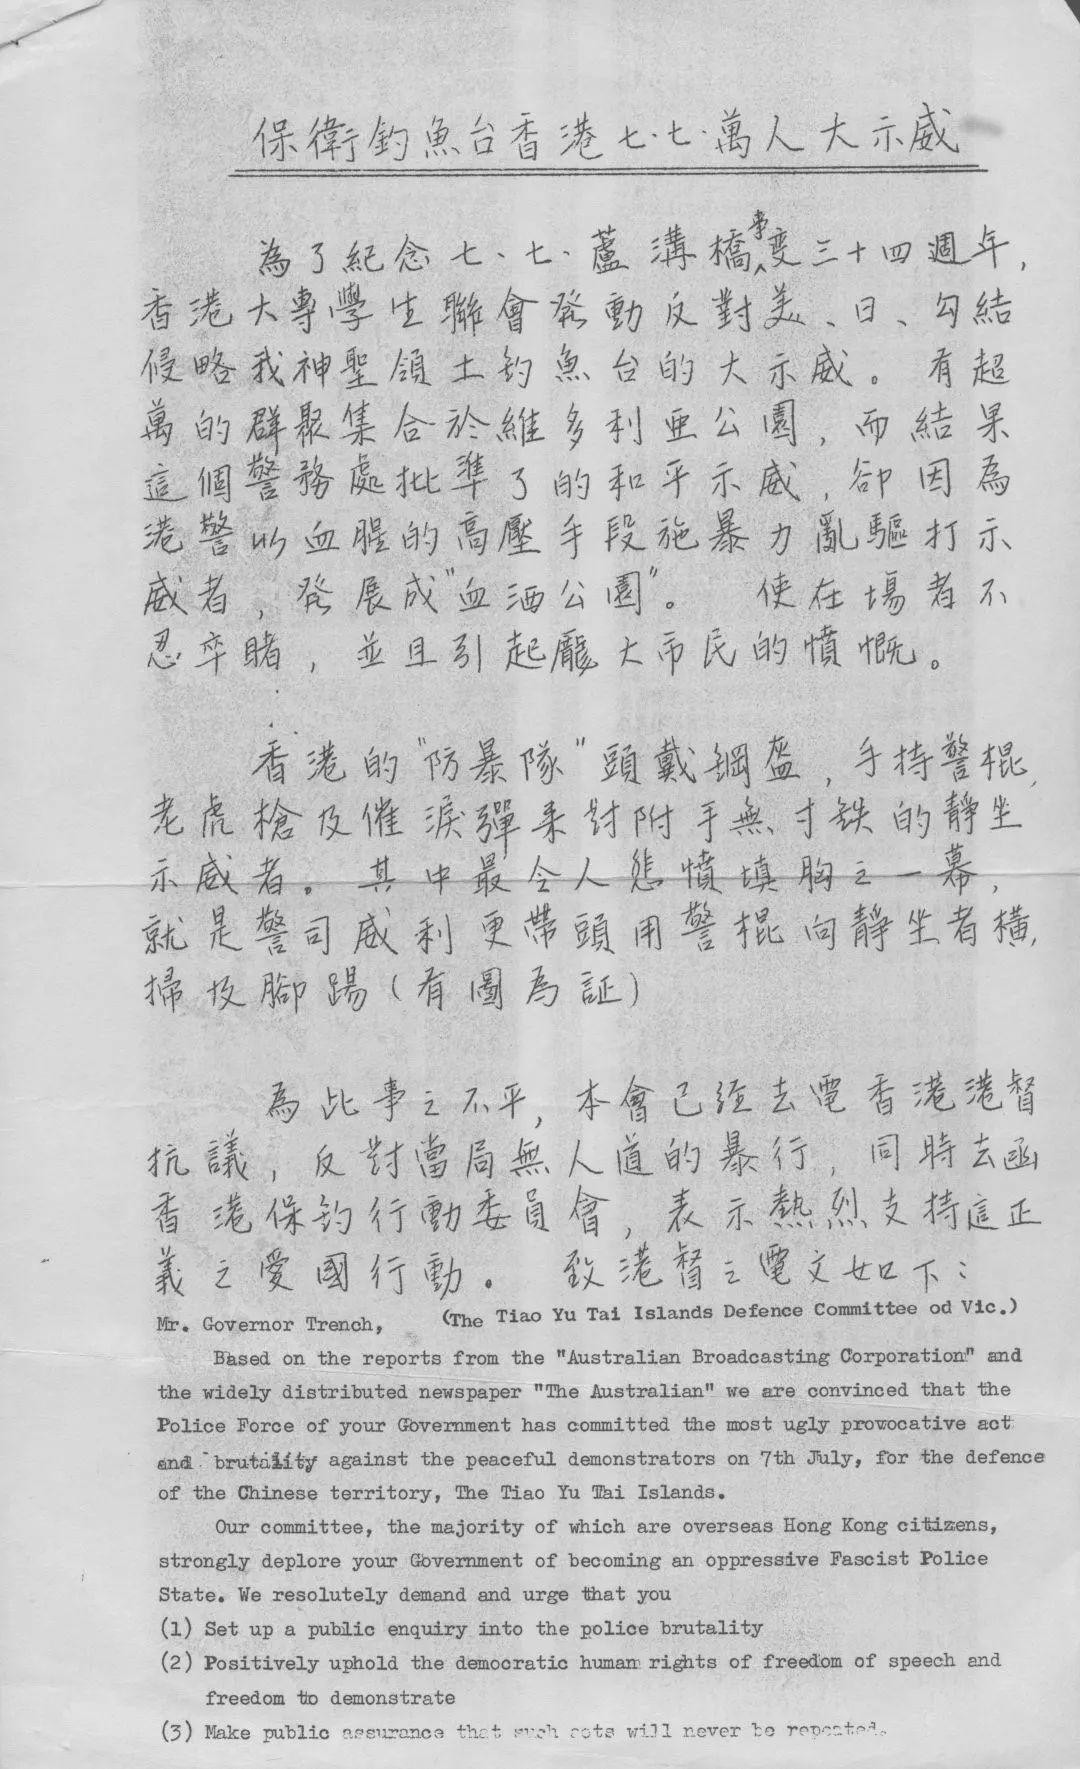 保衛釣魚台香港七.七.萬人大示威
為了紀念七、七、蘆溝橋事変三十四週年，
香港大專學生聯會発動反對美、日、勾結
侵略我神聖領土釣魚台的大示威。有超
萬的群眾集合於維多利亜公園，而結果
這個警務處批準了的和平示威，卻因為
港警以血腥的高壓手段施暴力亂驅打示
威者，発展成"血洒公園"。使在場者不
忍卒睹，並且引起龐大市民的憤慨。
香港的"防暴隊"頭戴鋼盔，手持警棍，
老虎槍及催淚彈來對附手無寸鉄的靜坐
示威者。其中最令人悲憤填胸之一幕，
就是警司威利更帶頭用警棍向靜坐者橫，
掃及腳踢（有圖為証）
為此事之不平，本會已經去電香港港督
抗議，反對當局無人道的暴行，同時去函
香港保釣行動委員會，表示熱烈支持這正
義之愛國行動。致港督之電文如下：
Mr. Governor Trench, (The Tiao Yu Tai Islands Defence Committee od Vic.)
Based on the reports from the "Australian Broadcasting Corporation" and
the widely distributed newspaper "The Australian" we are convinced that the
Police Force of your Government has committed the most ugly provocative act
and brutality against the peaceful demonstrators on 7th July, for the defence
of the Chinese territory, The Tiao Yu Tai Islands.
Our committee, the majority of which are overseas Hong Kong citizens,
strongly deplore your Government of becoming an oppressive Fascist Police
State. We resolutely demand and urge that you
(1) Set up a public enquiry into the police brutality
(2) Positively uphold the democratic human rights of freedom of speech and
freedom to demonstrate
(3) Make public assurance that such acts will never be repeated.